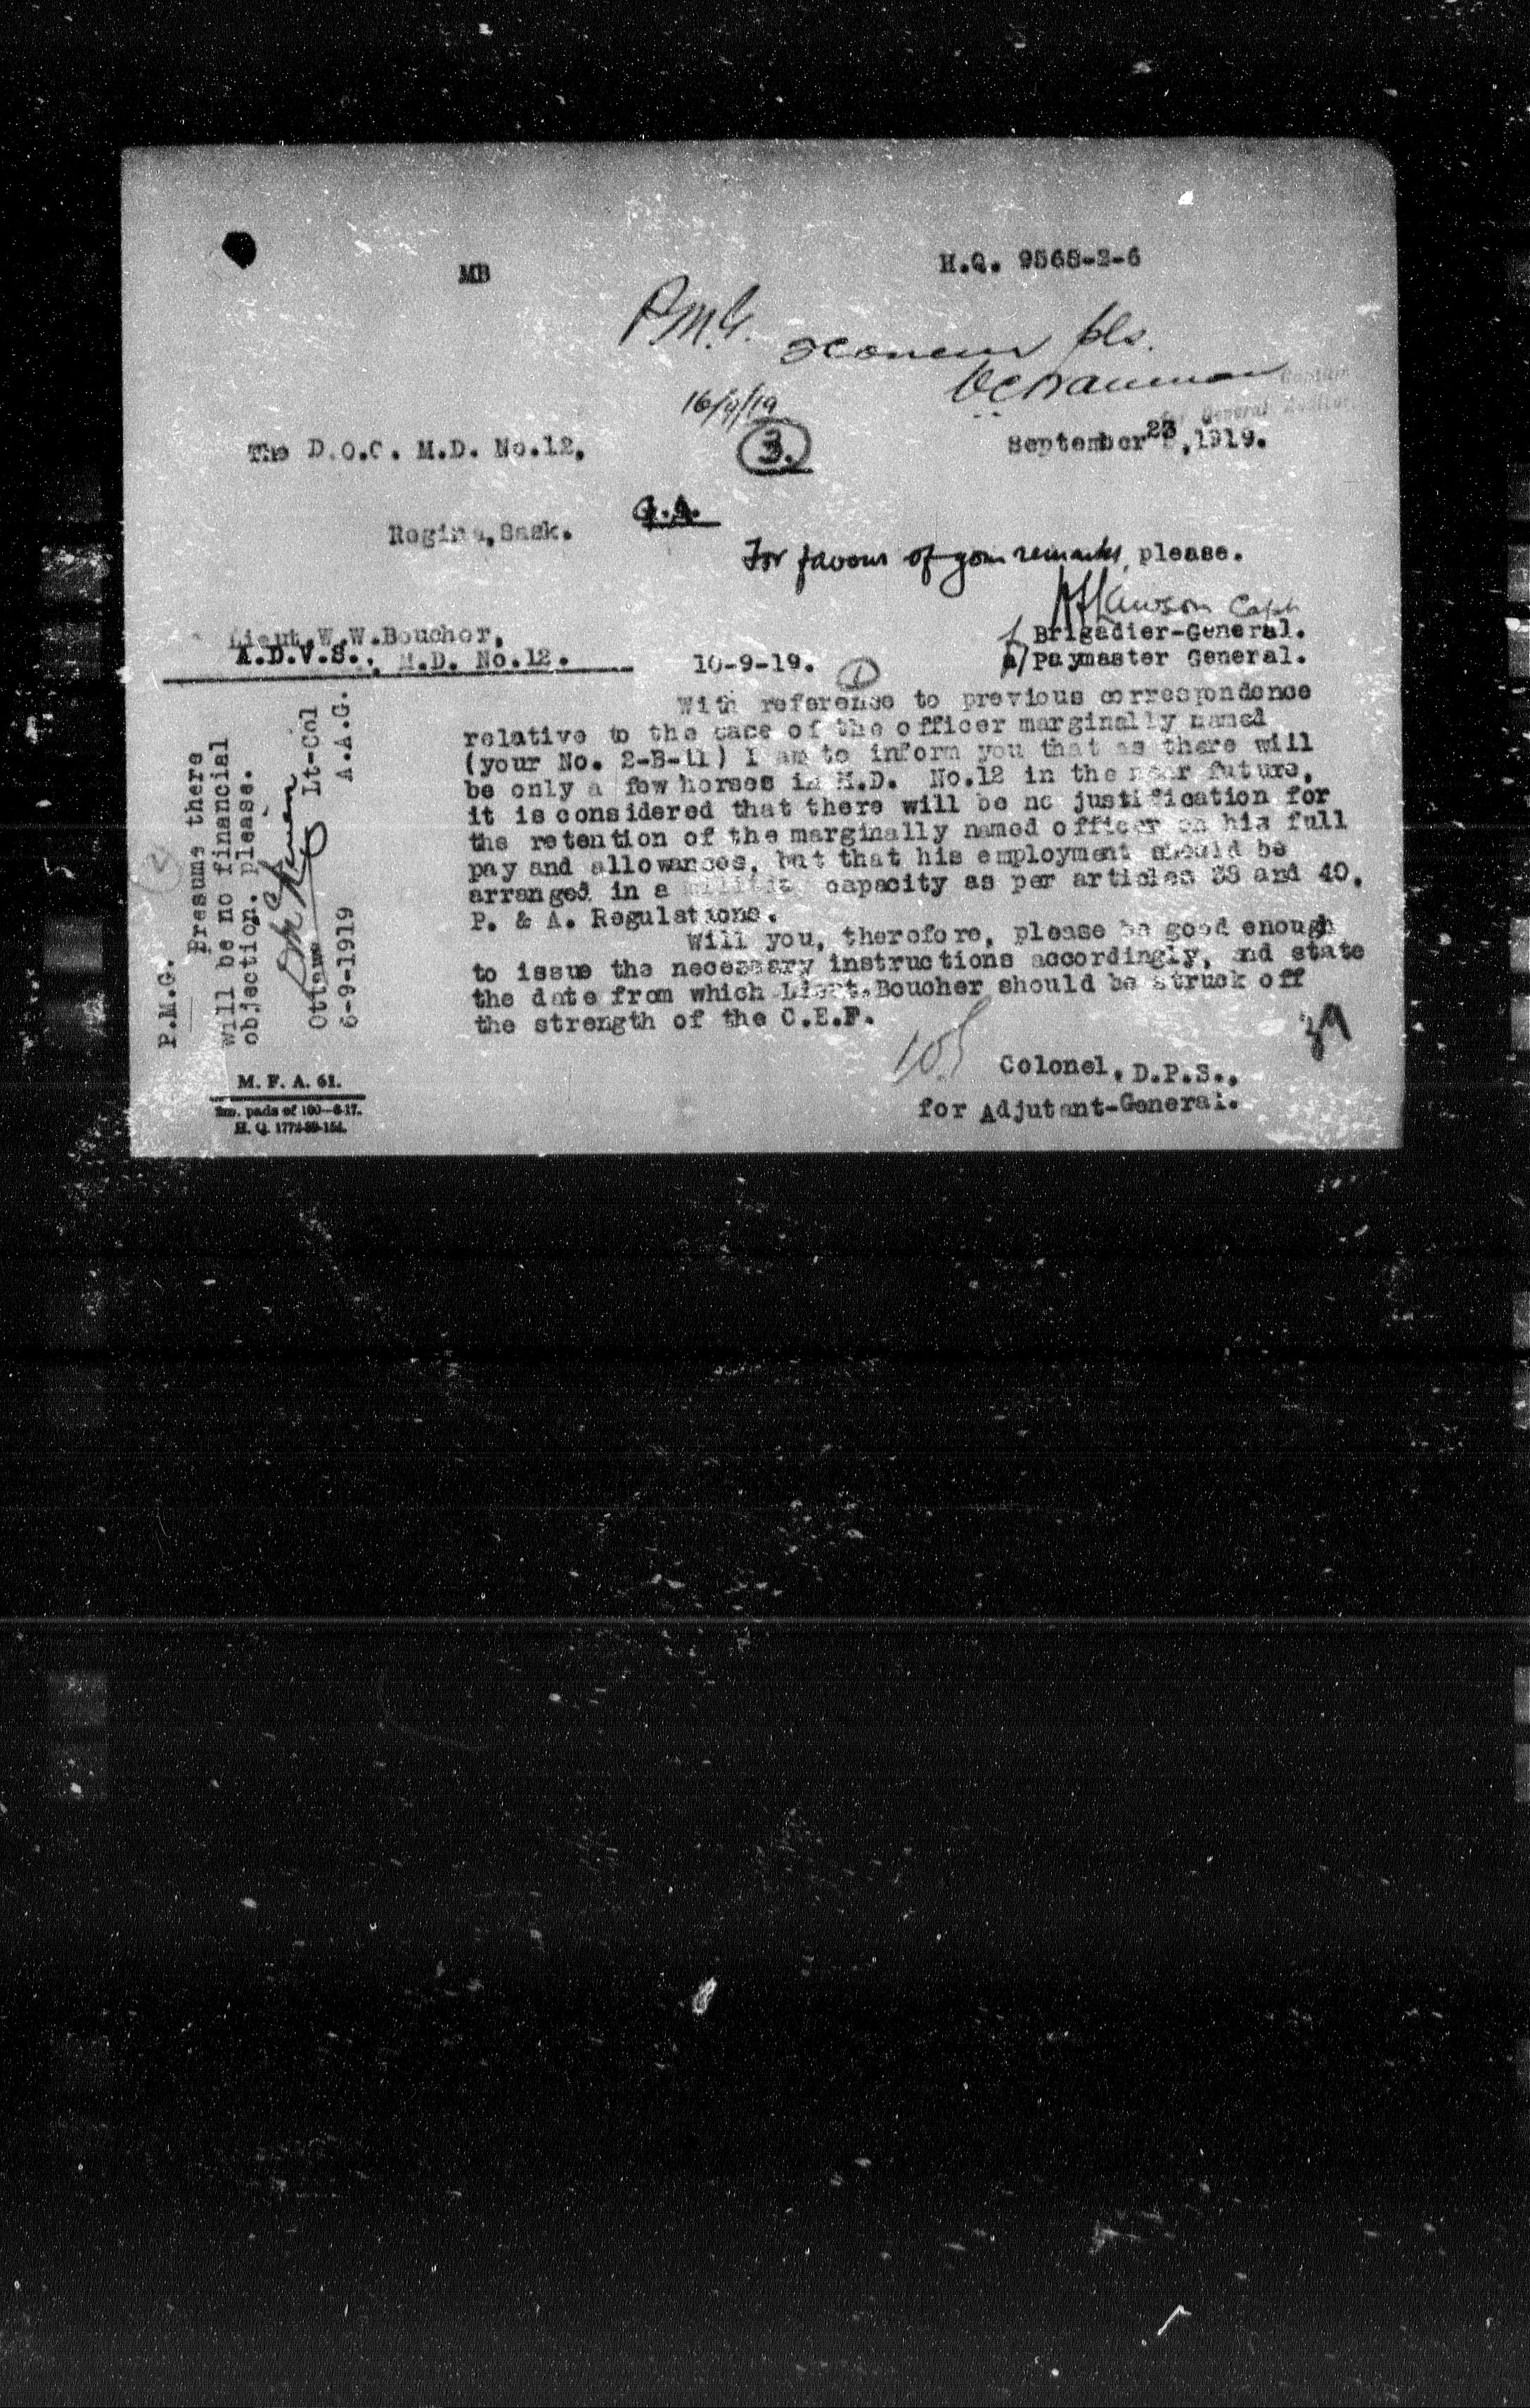 MB
H.Q. 9568-2-6
P.M.G.
I concur pls.
16/9/19
for General Auditor.
3.
The D.O.C. M.D. No.12,
September 23, 1919.
Regina, Sask.
G.A.
For favour of your remarks, please.
Capt
Lieut. W.W.Boucher,
A.D.V.S., M.D. No.12.
Brigadier-General.
10-9-19.
Paymaster General.
1
With reference to previous correspondence
relative to the case of the officer marginally named
(your No. 2-B-11) I am to inform you that as there will
be only a few horses in M.D. No.12 in the near future,
it is considered that there will be no justification for
the retention of the marginally named officer on his full
pay and allowances, but that his employment should be
arranged in a militia capacity as per articles 38 and 40,
P. & A. Regulations.
Will you, therefore, please be good enough
to issue the necessary instructions accordingly, and state
the date from which Lieut.Boucher should be struck off
the strength of the C.E.F.
Colonel, D.P.S.,
for Adjutant-General.
2
P.M.G.
Presume there
will be no financial
objection, please.
Lt-Col
A.A.G.
Ottawa
6-9-1919
M. F. A. 61.
H. Q. 1772-39-154.